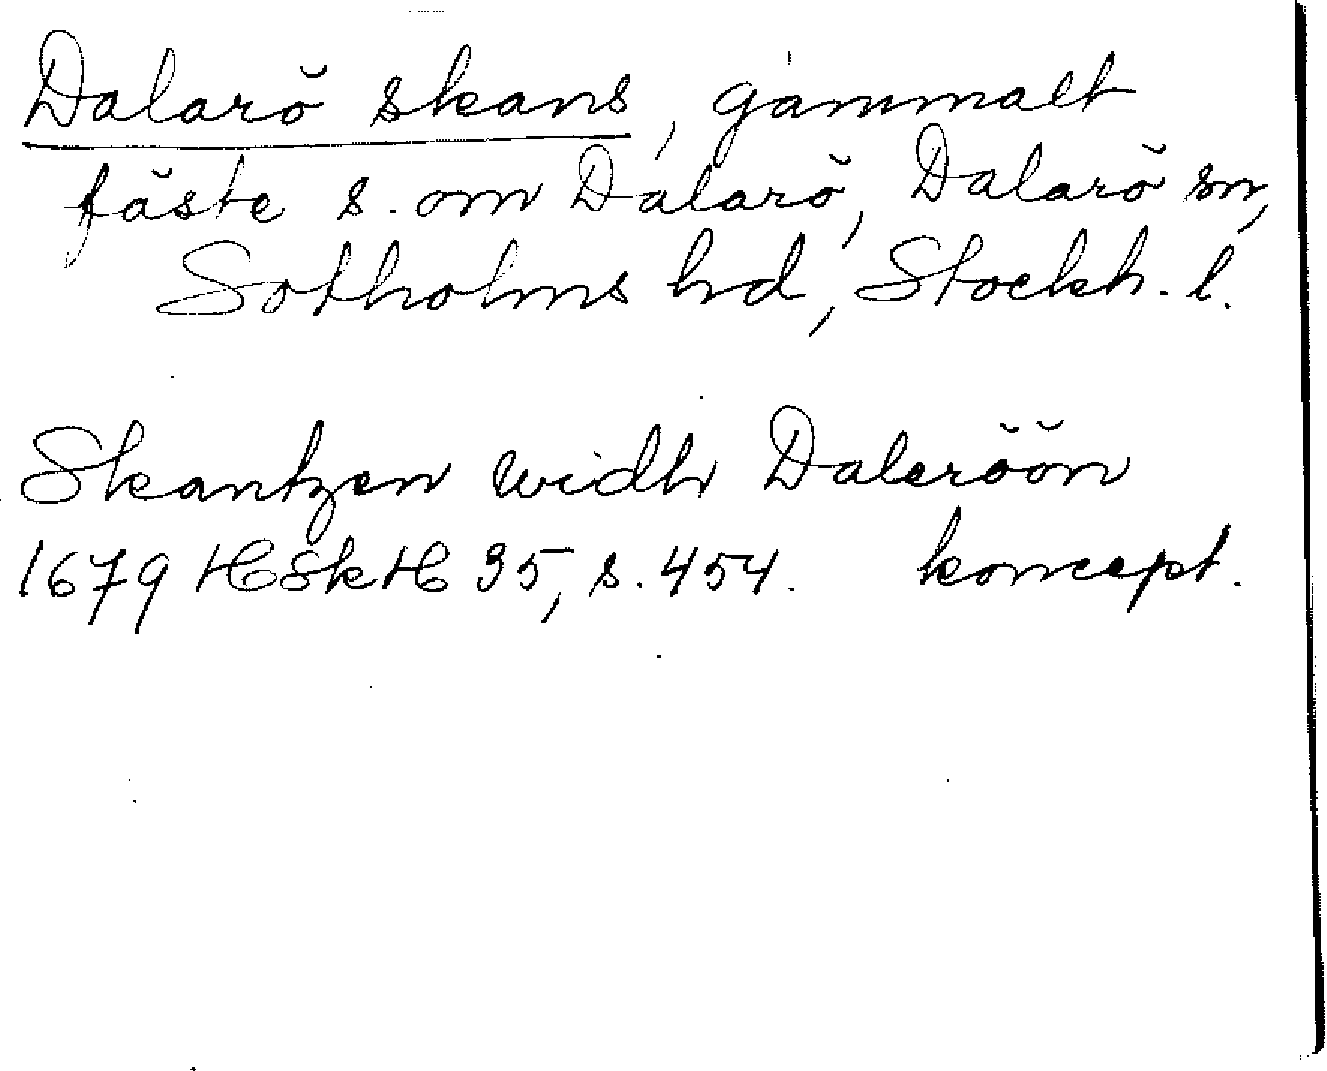 Dalarö skans, gammalt
fäste s. om Dalarö, Dalarö sn,
Sotholms hd, Stockh. l.
Skantzen widh Daleröön
1679 HSkH 35, s. 454. koncept.